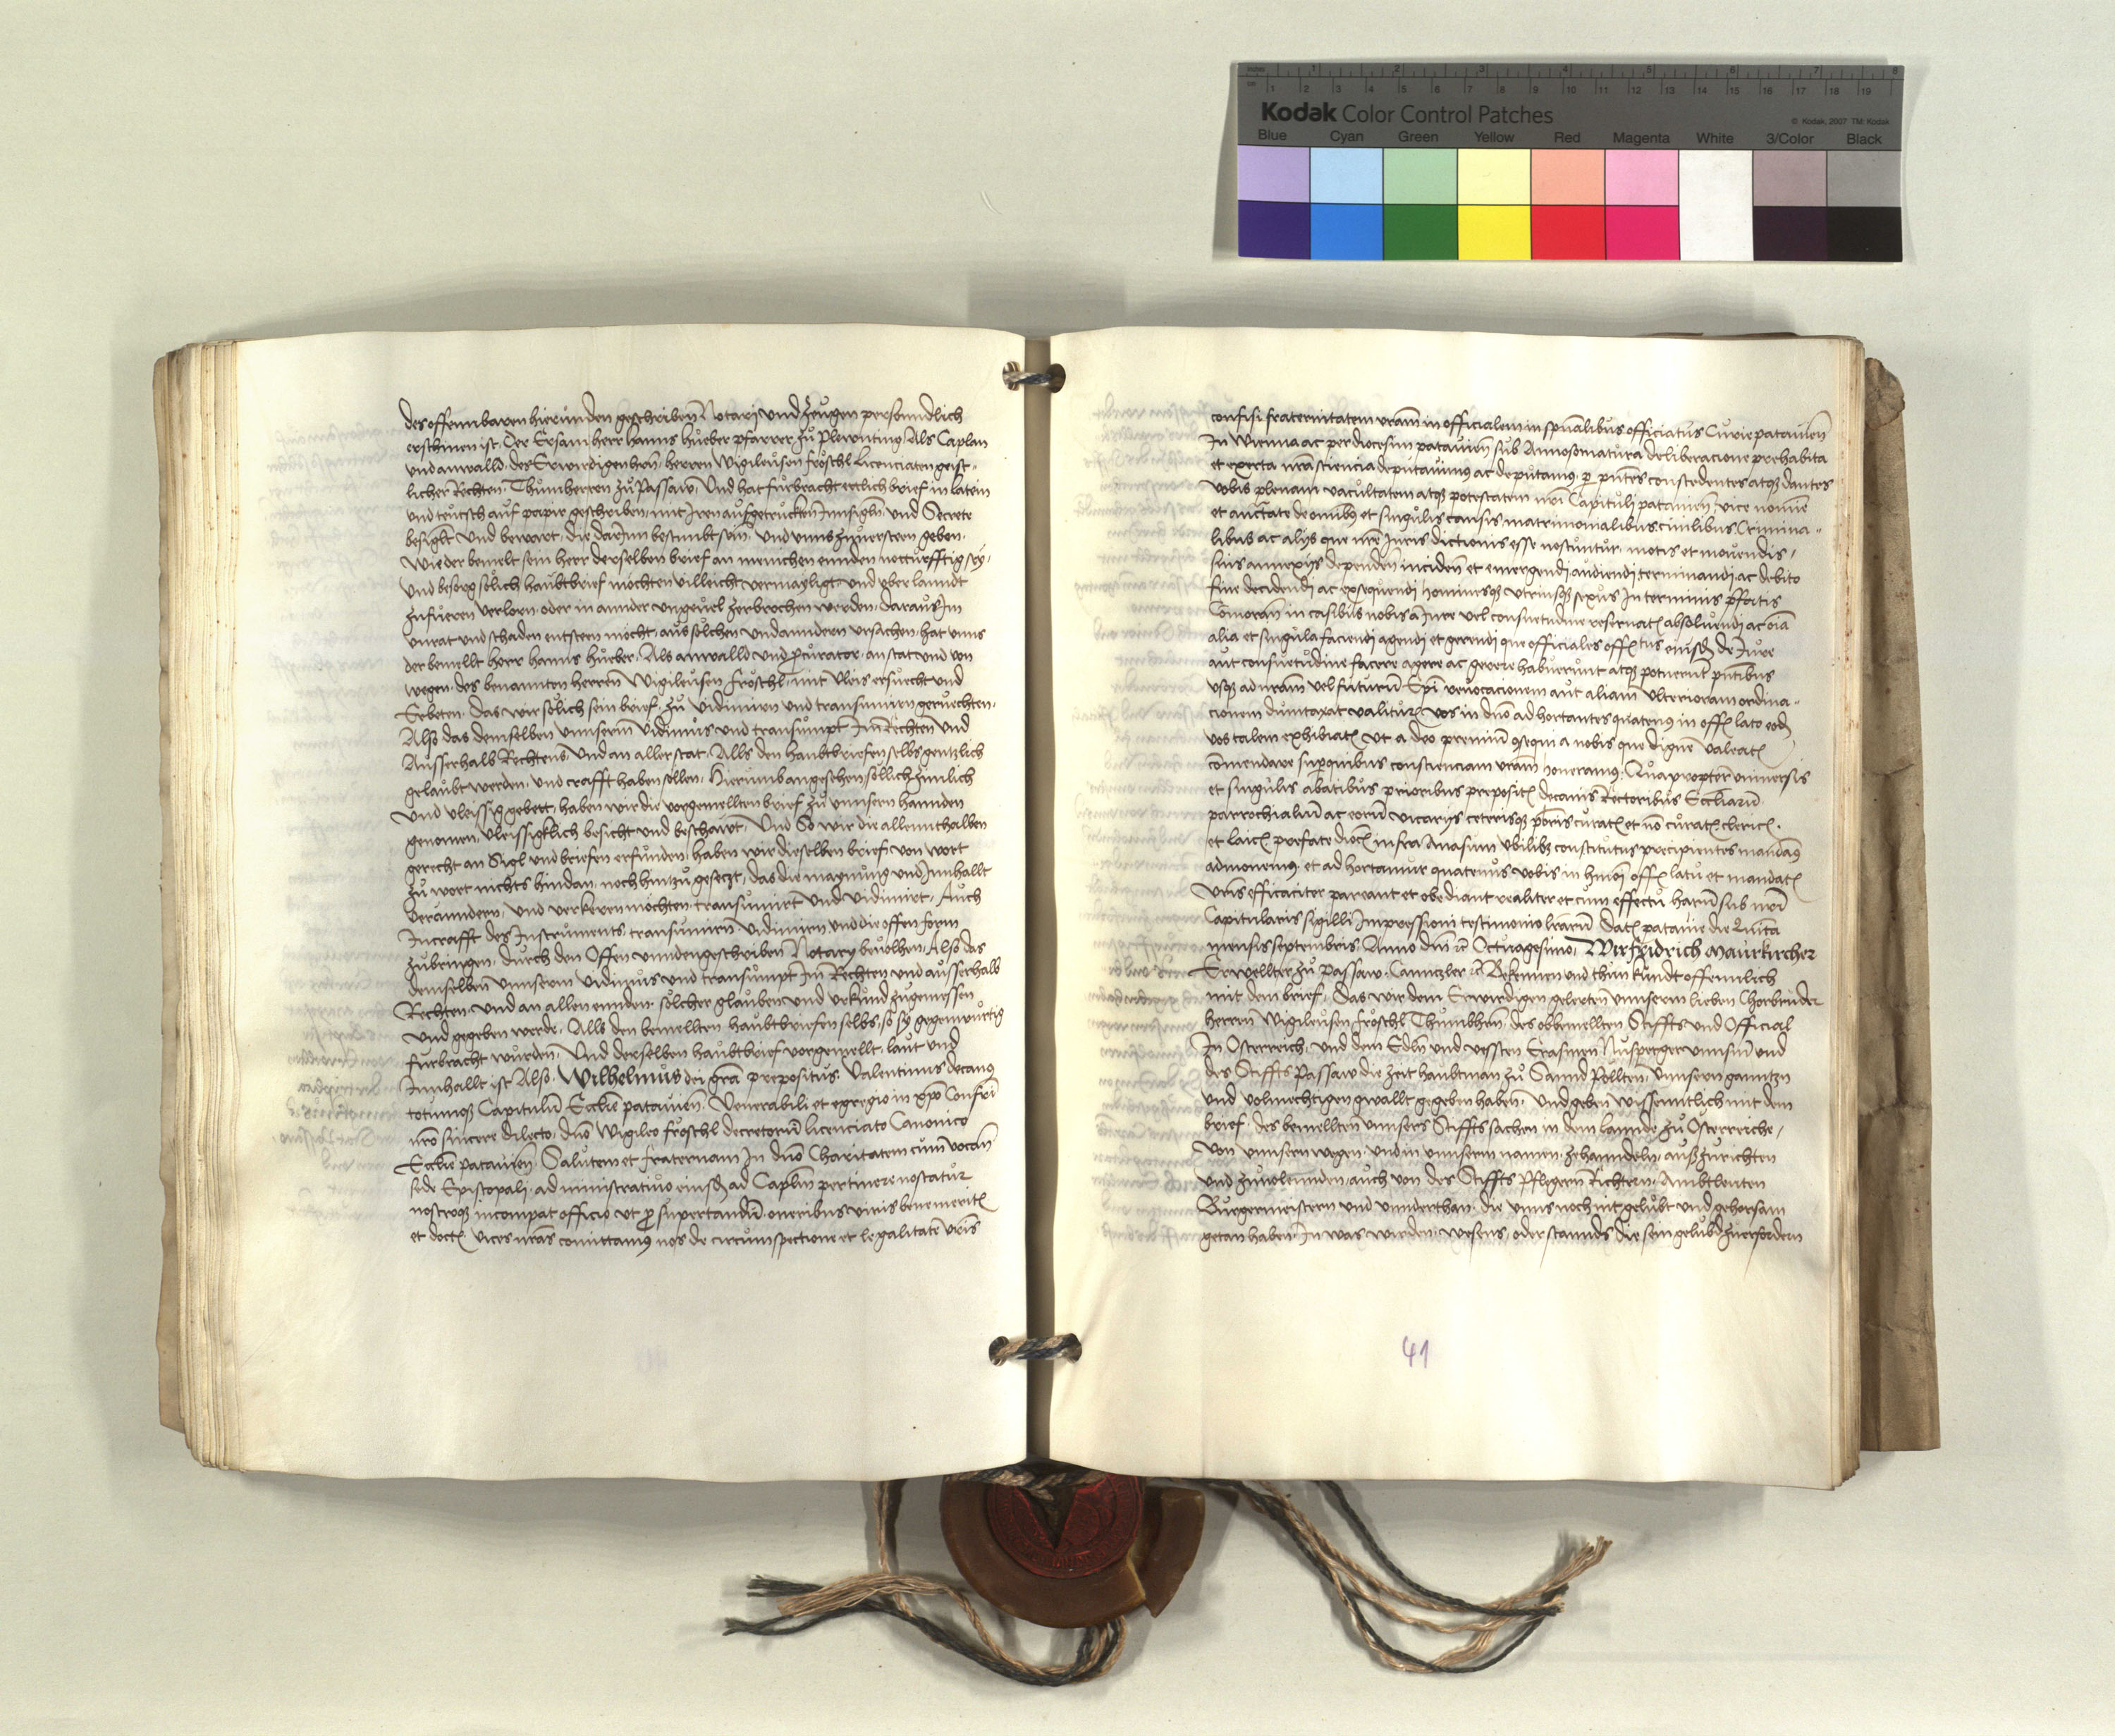 des offennbaren hierunden geschriben Notari und Zeugen personndlich
erschinen ist. Der Ersam herr hanns hueber pfarrer zu plewnting Als Caplan
und anwalld, des Erwirdigen hern herren Wigileusen fröschl Licenciaten geist-
licher Rechten, Thumherren zu Passaw, Und hat furbracht ettlich brief in latein
und teutsch auf papir geschriben, mit Iren aufgetruckten Innsigln und Secrete
besiglt und bewart, die darInn bestimbt sein, und unns zuuersteen geben.
Wie der bemelt sein herr derselben brief an menichen ennden notturfftig sey,
Und besorg solich haubtbrief mochten villeicht vermayligt und vber lanndt
zufueren verloren, oder in annder ungeuel zerbrochen werden, daraus Im
unrat und schaden entsteen mocht, aus solchen und anndern ursachen, hat unns
der bemellt herr hanns hueber, Als anwalld und procurator, an stat und von
wegen, des benannten herren Wigileusen fröschl, mit vleis ersuecht und
Erbeten, das wir solich sein brief, zu vidimiren und transumiren geruechten,
Also das demselben unnserm vidimus und transumpt Im Rechten und
Ausserhalb Rechtens, Und an aller stat, Alls den haubtbriefen selbs genntzlich
gelaubt werden, und crafft haben sollen, Hierumb angesehen, sollich zimlich
und vleissig gebett, haben wir die vorgemellten brief zu unnsern hannden
genomen, vleissigklich besicht und beschawt, Und So wir die allennthalben
gerecht an Sigl und briefen erfunden, haben wir dieselben brief von wort
zu wort nichts hindan, noch hintzu gesetzt, das die maynung und Innhallt
veränndern, und verkeren mochten, transumirt und vidimirt, Auch
Incrafft des Instruments, transumirn vidimirn, und die offen form
zubringen, durch den Offen unndengeschriben Notary beuolhen, Also das
demselben unnserm vidimus und transumpt Im Rechten und ausserhalb
Rechten, und an allen ennden, solcher glauben und urkund zugemessen
und gegeben werde, Alls den bemellten haubtbriefen selbs, so sy gegenwurtig
furbracht wurden, Und derselben haubtbrief vorgemellt, laut und
Innhallt ist Also, Wilhelmus dei gra prepositus, Valentinus decanus
totumqz Capitulum Ecclie patauien, Venerabili et egregio in xpo Confri
nro sincere dilecto, dno Wigileo fröschl decretorum licenciato Canonico
Ecclie patauien, Salutem et fraternam In dno Charitatem cum vocan
sede Episcopali, administratiuo eiusd ad Caplm pertinere noscatur
nostroqz incompat officio ut pro supportandu oneribus viris benemerit
et doct vices nras comittamus nos de circumspectione et legalitate vris
confisi fraternitatem vram in officialem in spualibus officiatus Curie patauien
In Wienna ac per diocesim patauien sub Annosomatura deliberacione prehabita
et experta nra sciencia deputauimus ac deputamus, per pntes concedentes atqz dantes
vobis plenam vacultatem atqz potestatem nri Capituli patauien, vice nomine
et auctate de omnibus et singulis causis matrimonialibus ciuilibus Crimina-
libus ac alys que nre Juris dictionis esse noscuntur, motis et mouendis,
suis annexys dependen inciden et emergendi, audiendi, terminandi, ac debito
fine decidendi ac exsequendi hominesqz vtriusqz sexus In terminis pfatis
Comoran in casibus nobis a Jure vel consuetudine reseruat absoluendi ac oia
alia et singula faciendi agendi et gerendi que officiales offitus eiusd de Jure
aut consuetudine facere agere ac gerere habuerunt atqz potuerunt pntibus
vsqz ad nram vel futuru Epi reuocacionem aut aliam vlterioram ordina-
cionem dumtaxat valitur, vos in dno ad hortantes quatenus in off lato eod
vos talem exhibiat ut a deo premiu consequi a nobis que digne valeat
comendare super quibus conscienciam vram honeramus, Quapropter vniuersis
et singulis abatibus prioribus preposit decanis Rectoribus Eccliaru
parrochialiu ac eoru vicarys ceterisqz pbris curat et no curat, cleric,
et laic prefate dioc infra Anasum vbilibz constitutus precipientes mandamus
admonemus, et ad hortamur quatenus vobis in hmoi off latu et mandat
vris efficaciter pareant et obediant realiter et cum effectu haru sub nri
Capitularis sigilli Impressioni testimonio lraru, Dat patauie die Quinta
mensis septembris Anno dni etc Octuagesimo, Wir fridrich Maurkircher
Erwellter zu Passaw, Canntzler etc Bekennen und thun kundt offennlich
mit dem brief, das wir dem Erwirdigen gelerten unnserm lieben Chorbruder
herren Wigileusen fröschl Thumbhern des obbemellten Stiffts und Official
In Osterreich, und dem Edln und vessten Erasmen Nusperger unnserm und
des Stiffts Passaw die zeit haubtman zu Sannd Pollten, unnsern ganntzn
und volmechtigen gwallt gegeben haben, Und geben wissenntlich mit dem
brief, des bemellten unnsers Stiffts sachen in dem lannde zu Osterreiche,
von unnsern wegen, und in unnserm namen, zehanndeln, auszurichten
und zuuolennden, auch von des Stiffts Pflegern Richtern, Ambtleuten
Burgermeistern und unnderthan, die unns noch nit gelubt und gehorsam
getan haben, In was wirden, wesens, oder stannds die sein gelubd zuerfordern
41
Kodak Color Control Patches
© Kodak, 2007 TM: Kodak
Blue Cyan Green Yellow Red Magenta White 3/Color Black